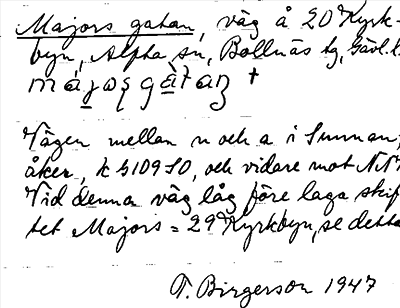 Majors gatan, väg å 20 Kyrk-
byn, Alpha sn, Bollnäs tg, Gävl. l.
Vägen mellan n och a i Sunnan-
åker, k 5109 SO, och vidare mot NNV
Vid denna väg låg före laga skif-
tet Majors = 29 Kyrkbyn, se detta
T. Birgerson 1947